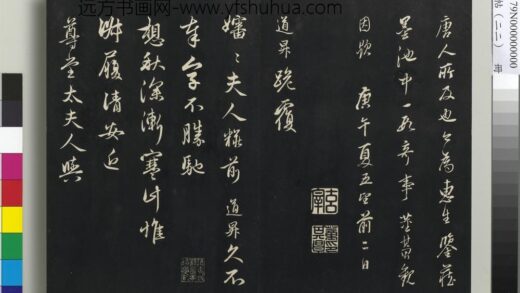 远方书画网-www.yfshuhua.com
唐人所及也今為惠生鑒藏
墨池中一段奇事 董其昌觀
因題 庚午夏五望前二日
道昇跪覆
嬸〻夫人粧前 道昇久不
奉字不勝馳
想秋深漸寒計惟
淑履清安近
尊堂太夫人與
79N000000000
帖(二二)